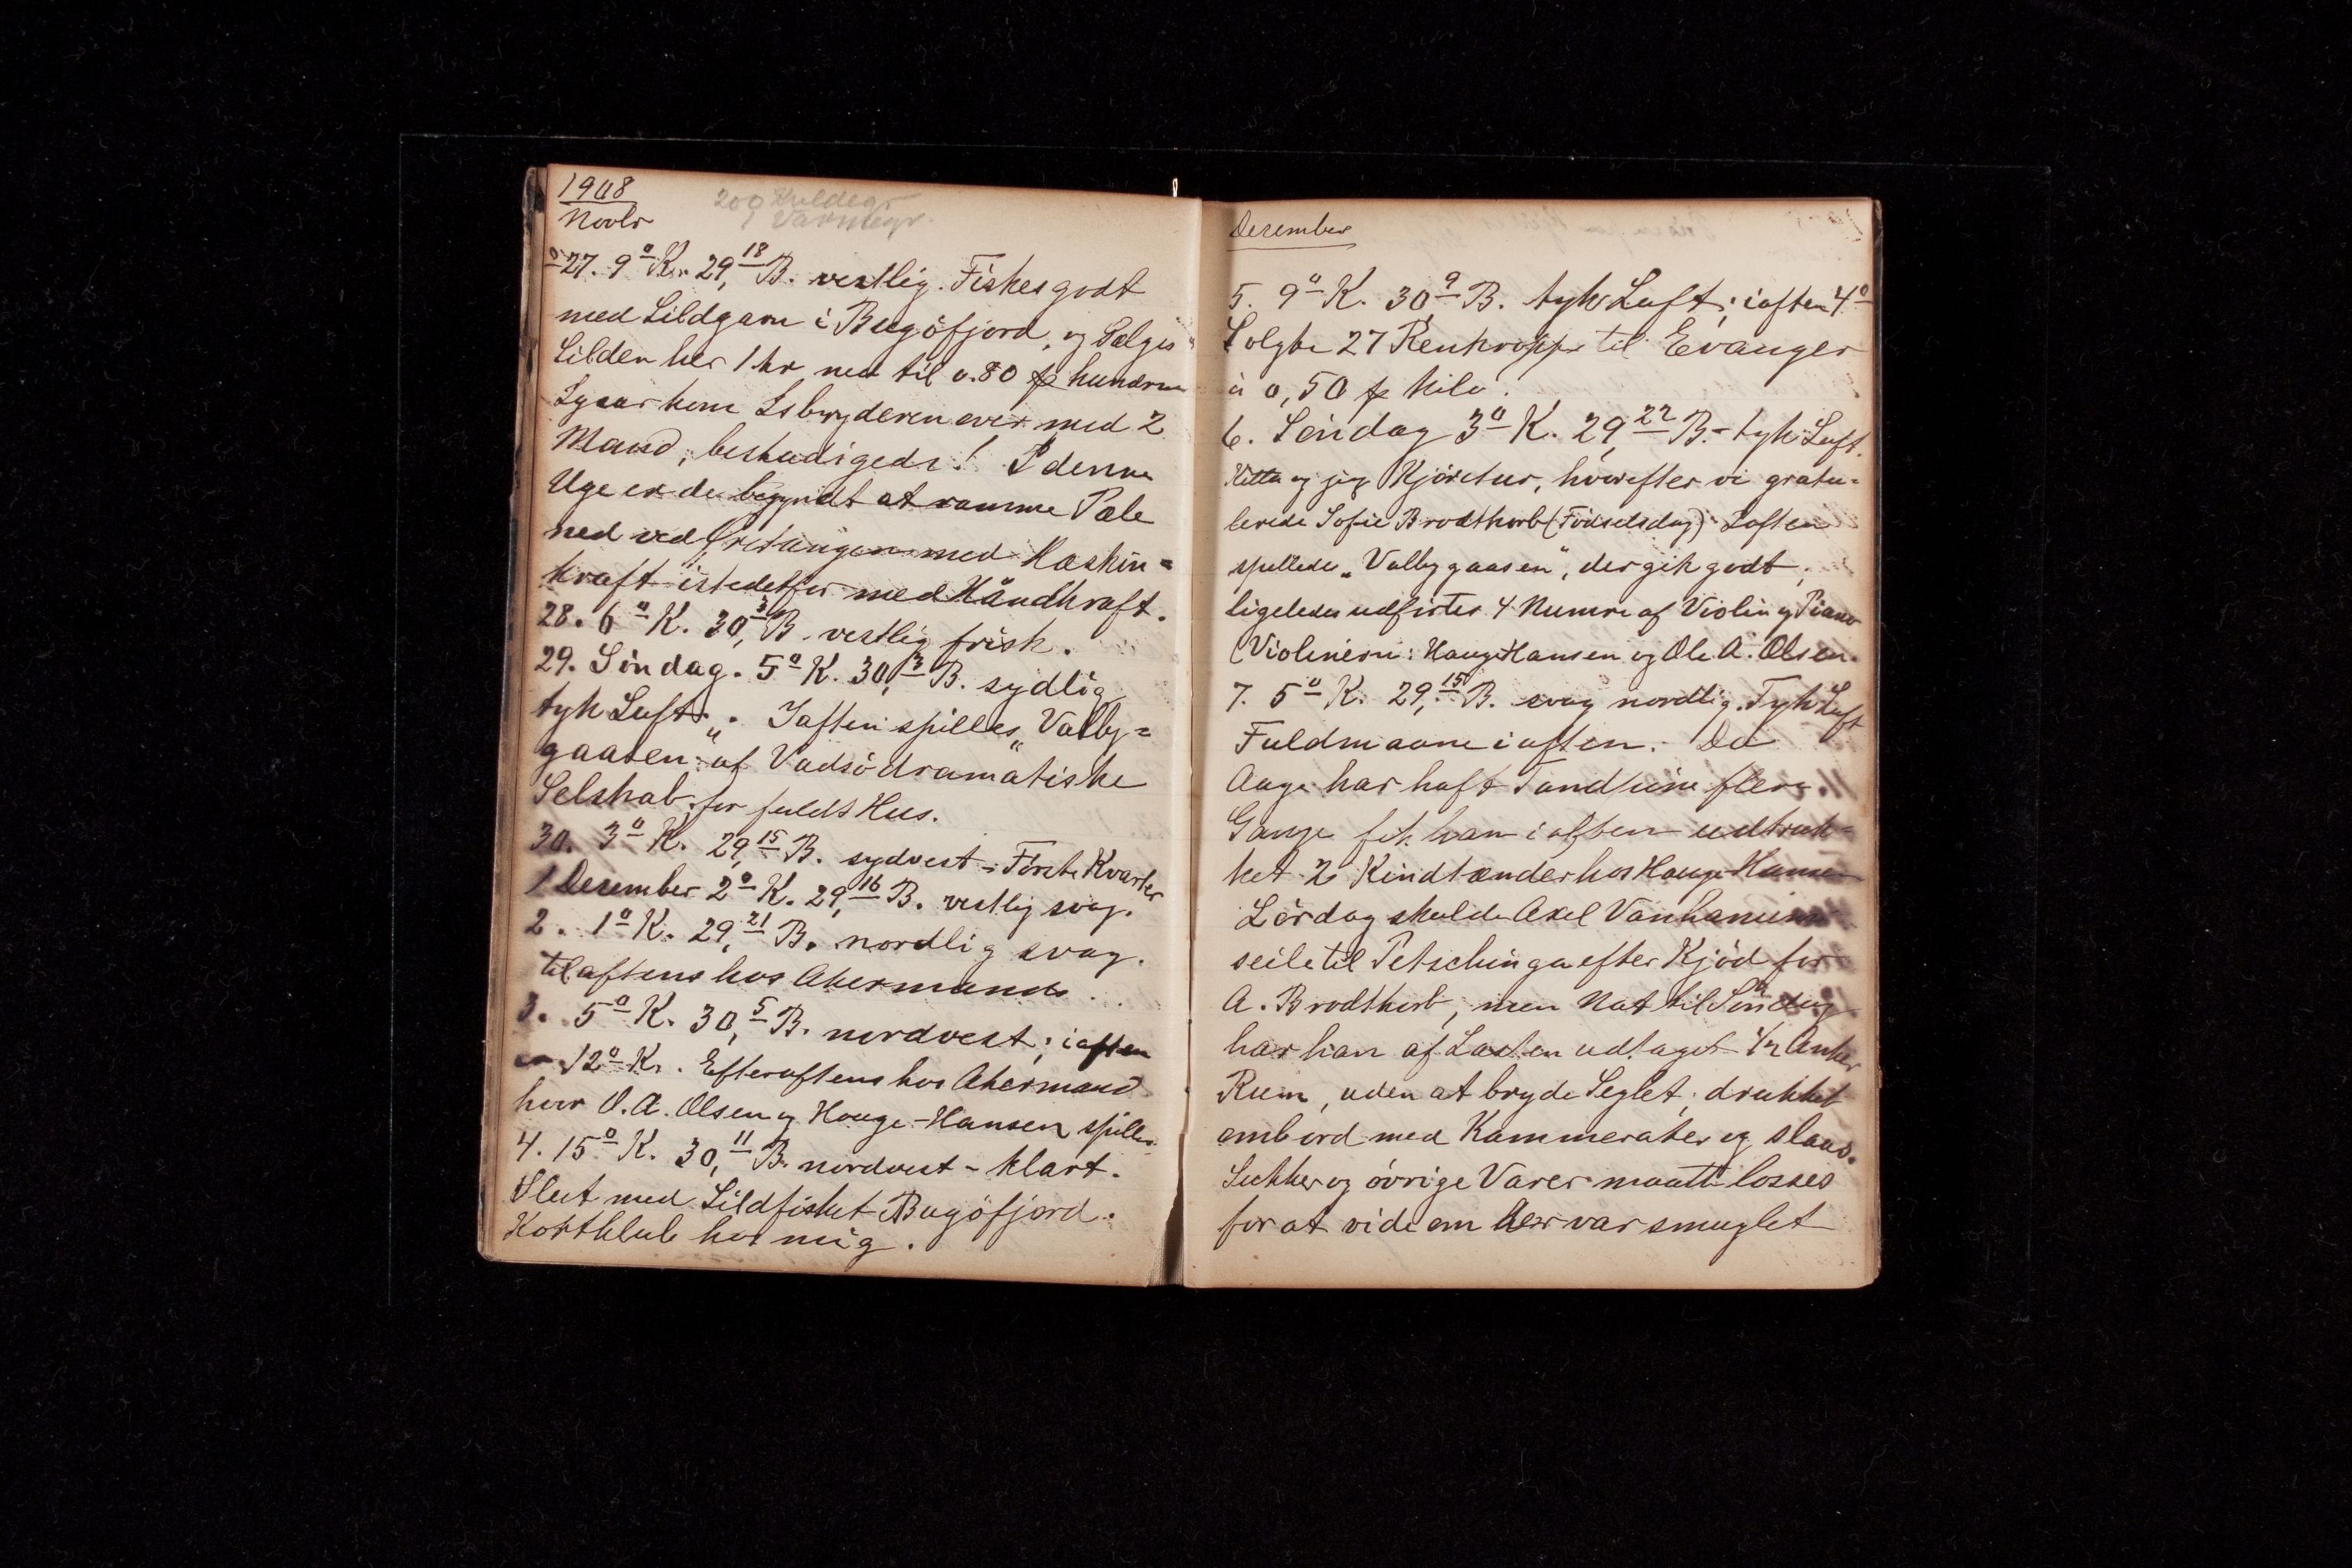 1908
Novbr
200 Kuldegr
Varmegr.
27. 9° K. 29,18 B. vestlig. Fiskes godt
med Sildgarn i Bugöfjord, og Sælges
Silden her 1 kr ned til 0.80 pr hundrede
Igaar kom Isbryderen over med 2
Mand, beskadigede! I denne
Uge er de begyndt at ramme Pæle
ned ved med Maskin=
kraft istedetfor med Håndkraft.
28. 6° K. 30,3 B. vestlig frisk.
29. Söndag. 5° K. 30,3 B. sydlig
tyk Luft. Iaften spilles „Valby=
gaasen" af Vadsö dramatiske
Selskab, for fuldt Hus.
30. 3° K. 29,15 B. sydvest - Förste Kvarter
1 Desember 2° K. 29,16 B. vestlig svag.
2. 1° K. 29,21 B. nordlig svag.
til aftens hos Akermands
3. 5° K. 30,5 B. nordvest; iaften
12° K. Efteraftens hos Akermand
hvor O. A. Olsen og Hauge-Hansen spiller
4. 15° K. 30,11 B. nordvest - klart.
Slut med Sildfisket i Bugöfjord.
Kortklub hos mig.
Desember
5. 9° K. 30,9 B. tyk Luft; iaften 4°
Solgte 27 Renkroppe til Evanger
à 0,50 pr Kilo.
6. Söndag 3° K. 29,22 B. - tyk Luft.
Kitta og jeg Kjöretur, hvorefter vi gratu=
lerede Sofie Brodtkorb (Födselsdag) Iaften
spillede „Valbygaasen", der gik godt;
ligeledes udförtes 4 Numre af Violin og Piano
(Violinerne: Hauge Hansen og Ole A. Olsen.
7. 5° K. 29,15 B. svag nordlig. Tyk Luft
Fuldmaane iaften. - Da
Aage har haft Tandpine flere
Gange fik han iaften udtruk=
ket 2 Kindtænder hos Hauge Hansen
Lördag skulde Axel Vanhanen
seile til Petschinga efter Kjöd for
A. Brodtkorb, men Nat til Söndag
har han af Lasten udtaget 1/2 Anker
Rum, uden at bryde Seglet; drukket
ombord med Kammerater og slaas.
Sukker og övrige Varer maatte losses
for at vide om der var smuglet